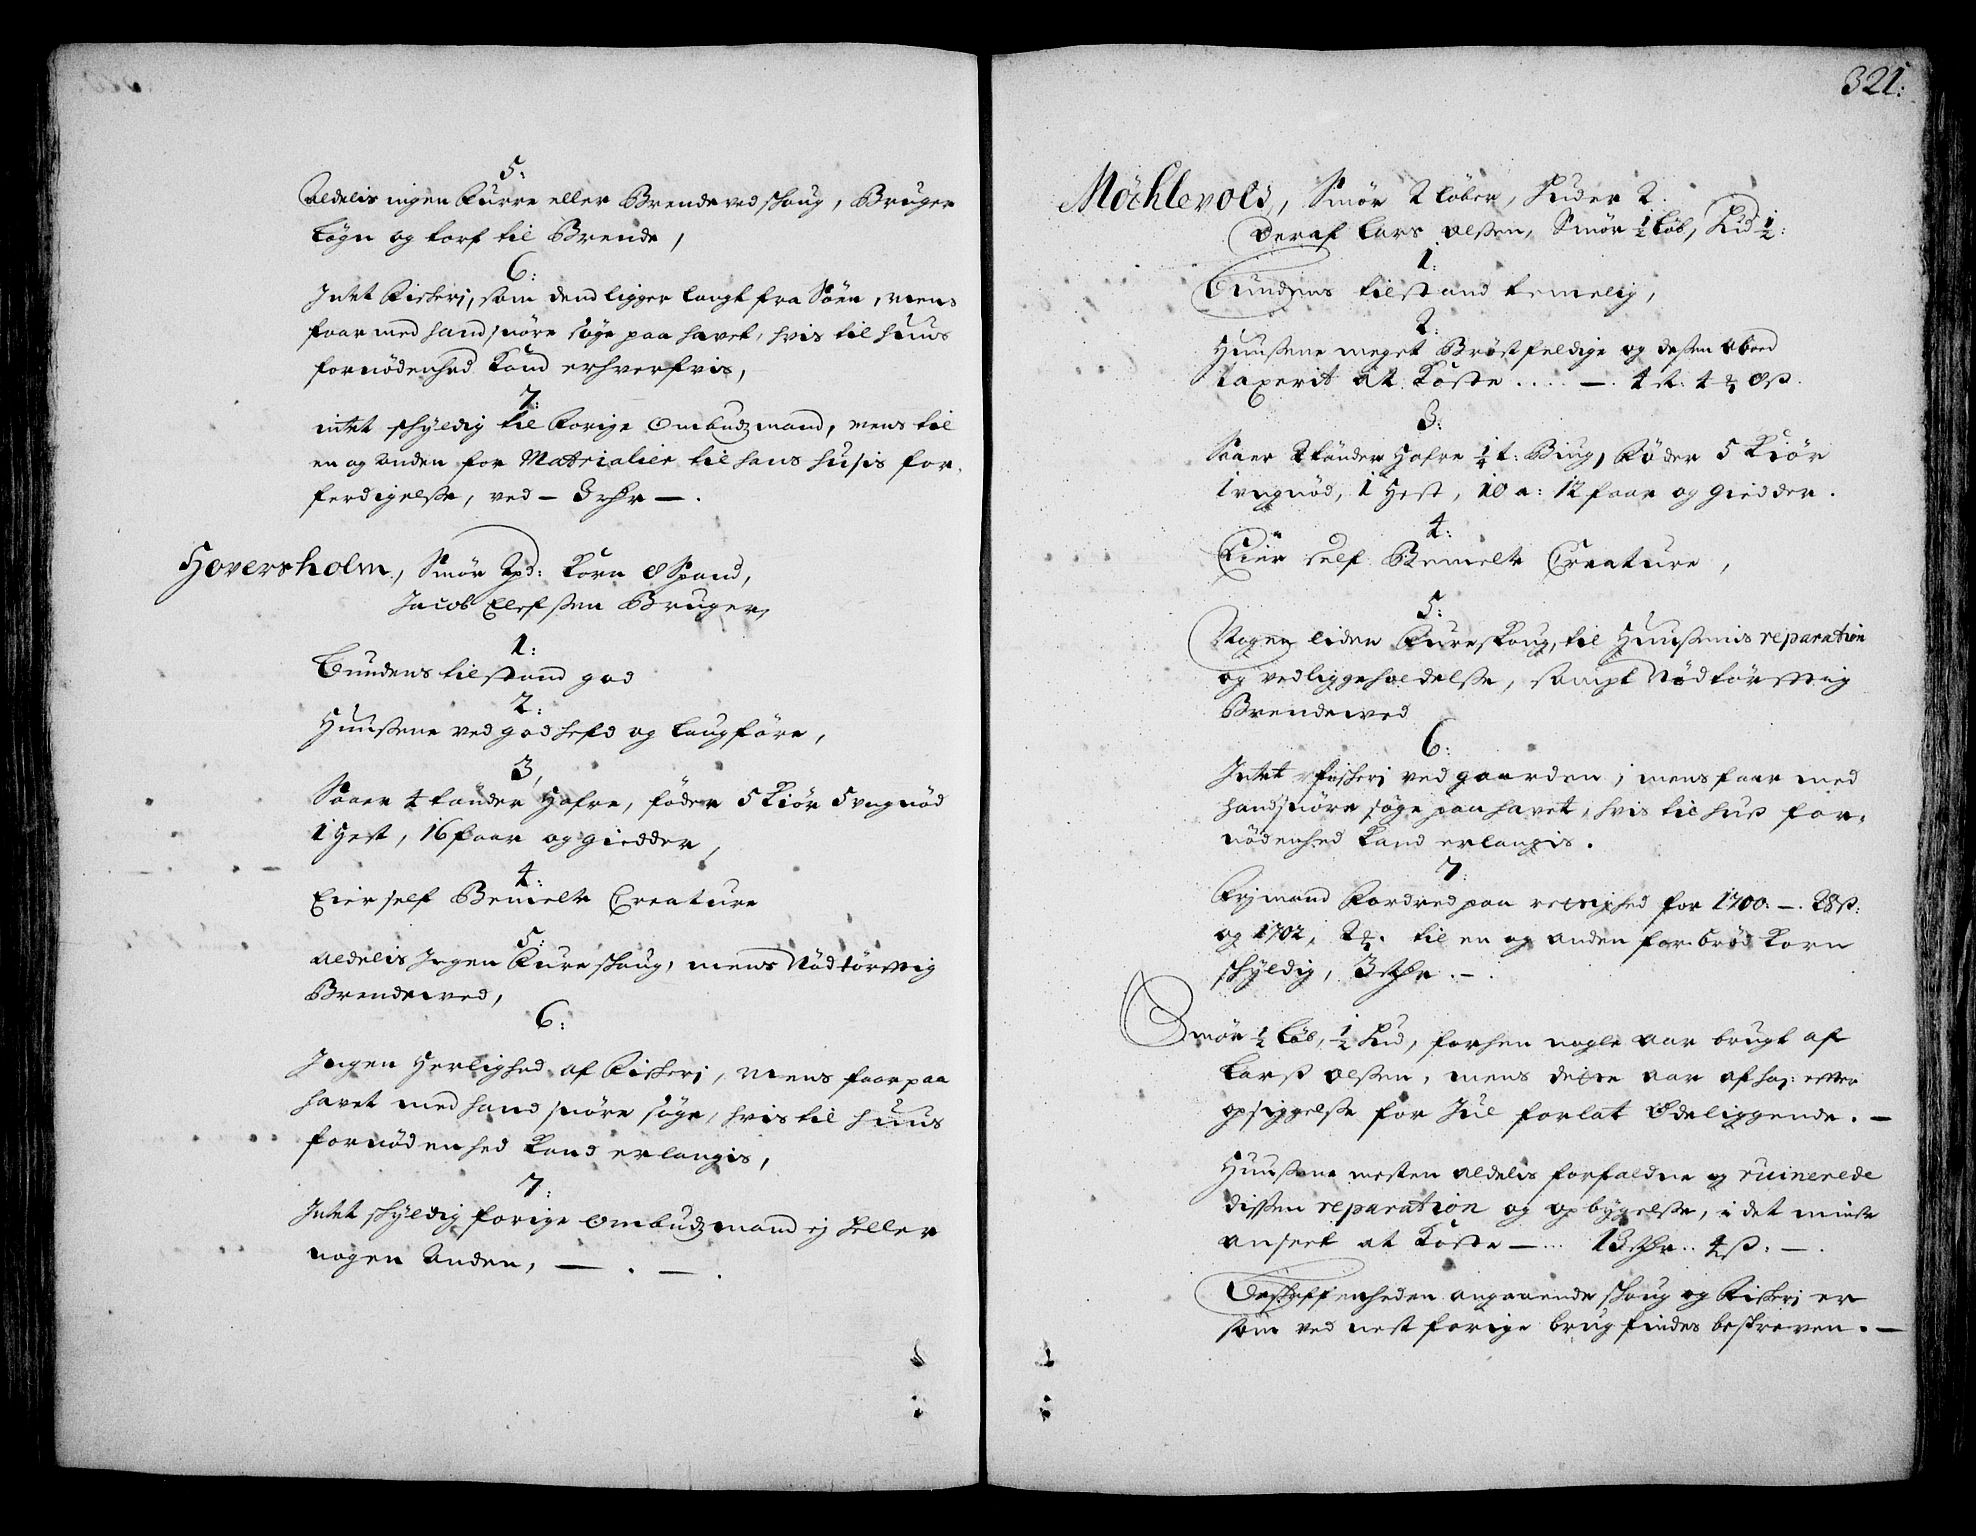 5:
Aldelis ingen Furre eller Brendeved skoug, Bruger
Løgn og torf til Brende,
6:
Intet Fiskeri, som dend ligger langt fra Søen, mens
faar med handsnøre søge paa havet, hvis til huus
fornødenhed Kand erhverfvis,
7:
intet skyldig til forige Ombudzmand, mens til
en og anden for Matrialier til hans husis for,
ferdigelsse, ved – 3 rdr – .
Hoversholm, Smør 2 pd: Korn 8 Spand,
Jacob Elefssen Bruger,
1:
Bundens tilstand god
2:
Huussene ved god hefd og laugføre,
3,
Saaer 4 tønder Hafre, føder 5 Kiør 5 ungnød
1 Hest, 16 faar og giedder,
4:
Eier self Bemelte Creature
5:
Aldelis Ingen Fure skoug, mens Nødtørftig
Brendeved,
6:
Ingen Herlighed af Fiskeri, mens faar paa
havet med hand snøre søge, hvis til huus
fornødenhed Kand erlangis,
7:
Intet skyldig forige Ombudzmand ej heller
nogen Anden, — . — .
321:
Möchlevold, Smør 2 Løber, Huder 2.
Deraf Lars Olssen, Smør ½ Løb, Hud ½:
1:
Bundens tilstand temelig,
2:
Huussene meget Brøstfeldige og dessen Aboed
taxerit at Koste .... — . 4 rdr. 4 ꝸ 8 ß.
3:
Saaer 2 tønder Hafre ¼ t: Biug, Føder 5 Kiør
1 ungnød, 1 Hest, 10 a: 12 faar og giedder.
4:
Eier self Bemelte Creature,
5:
Nogen liden Fureskoug, til Huussenis reparation
og vedligge holdelsse, sampt Nødtørfftig
Brendeved
6:
Intet Fiskeri ved gaarden, mens faar med
handsnøre søge paa havet, hvis til huß for,
nødenhed Kand erlangis.
7:
Frimand Fordred paa rettighed for 1700. —. 28 ß:
og 1702, 2 ꝸ. til en og anden for brød Korn
skyldig, 3 rdr. – .
Smør ½ Løb, ½ Hud, forhen nogle aar brugt af
Larß Olssen, mens dette aar af ham efter
opsiggelsse for Jul forlat Ødeliggende. —
Huussene mesten aldelis forfaldne og ruinerede
dissen reparation og opbygelsse, i det minste
anseet at Koste — ... 13 rdr .. 4 ß. — .
Beskaffenheden angaaende skoug og Fiskeri er
som ved nest forige brug findes beskreven. —